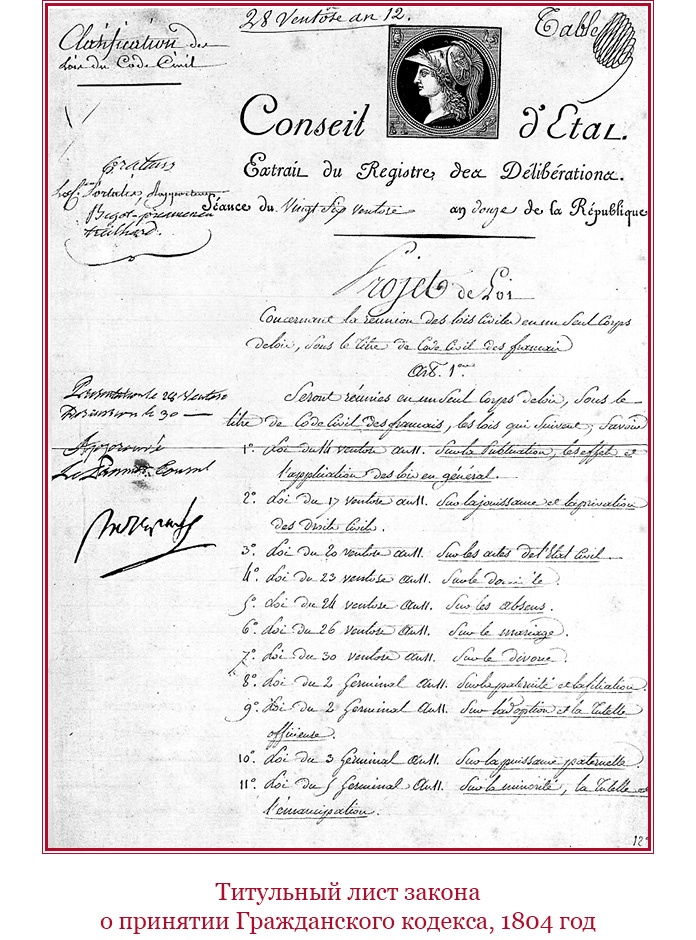 28 Ventôse an 12.
Table
Classification des
Lois du Code Civil
Conseil d'Etat.
Extrait du Registre des Délibérations.
Séance du Vingt Sept ventose an douze de la République
Portalis,
Bigot-préameneu
Treilhard.
Projet de Loi
Concernant la réunion des lois civiles en un seul Corps
de loix, sous le titre de Code Civil des français
Art. 1er
Présentation le 24 Ventose
Discussion le 30 —
Approuvé
Le Premier Consul
Seront réunies en un seul Corps de loix, sous le
titre de Code Civil des français, les lois qui suivent; Savoir
1º. Loi du 14 ventose an 11. Sur la Publication, les effets et
l'application des lois en général.
2º. Loi du 17 ventose an 11. Sur la jouissance et la privation
des droits civils.
3º. Loi du 20 ventose an 11. Sur les actes de l'Etat Civil.
4º. Loi du 23 ventose an 11. Sur le domicile.
5º. Loi du 24 ventose an 11. Sur les absens.
6º. Loi du 26 ventose an 11. Sur le mariage.
7º. Loi du 30 ventose an 11. Sur le divorce.
8º. Loi du 2 Germinal an 11. Sur la paternité et la filiation.
9º. Loi du 2 Germinal an 11. Sur l'adoption et la Tutelle
officieuse.
10º. Loi du 3 Germinal an 11. Sur la puissance paternelle.
11º. Loi du 5 Germinal an 11. Sur la minorité, la Tutelle et
l'émancipation.
Титульный лист закона
о принятии Гражданского кодекса, 1804 год